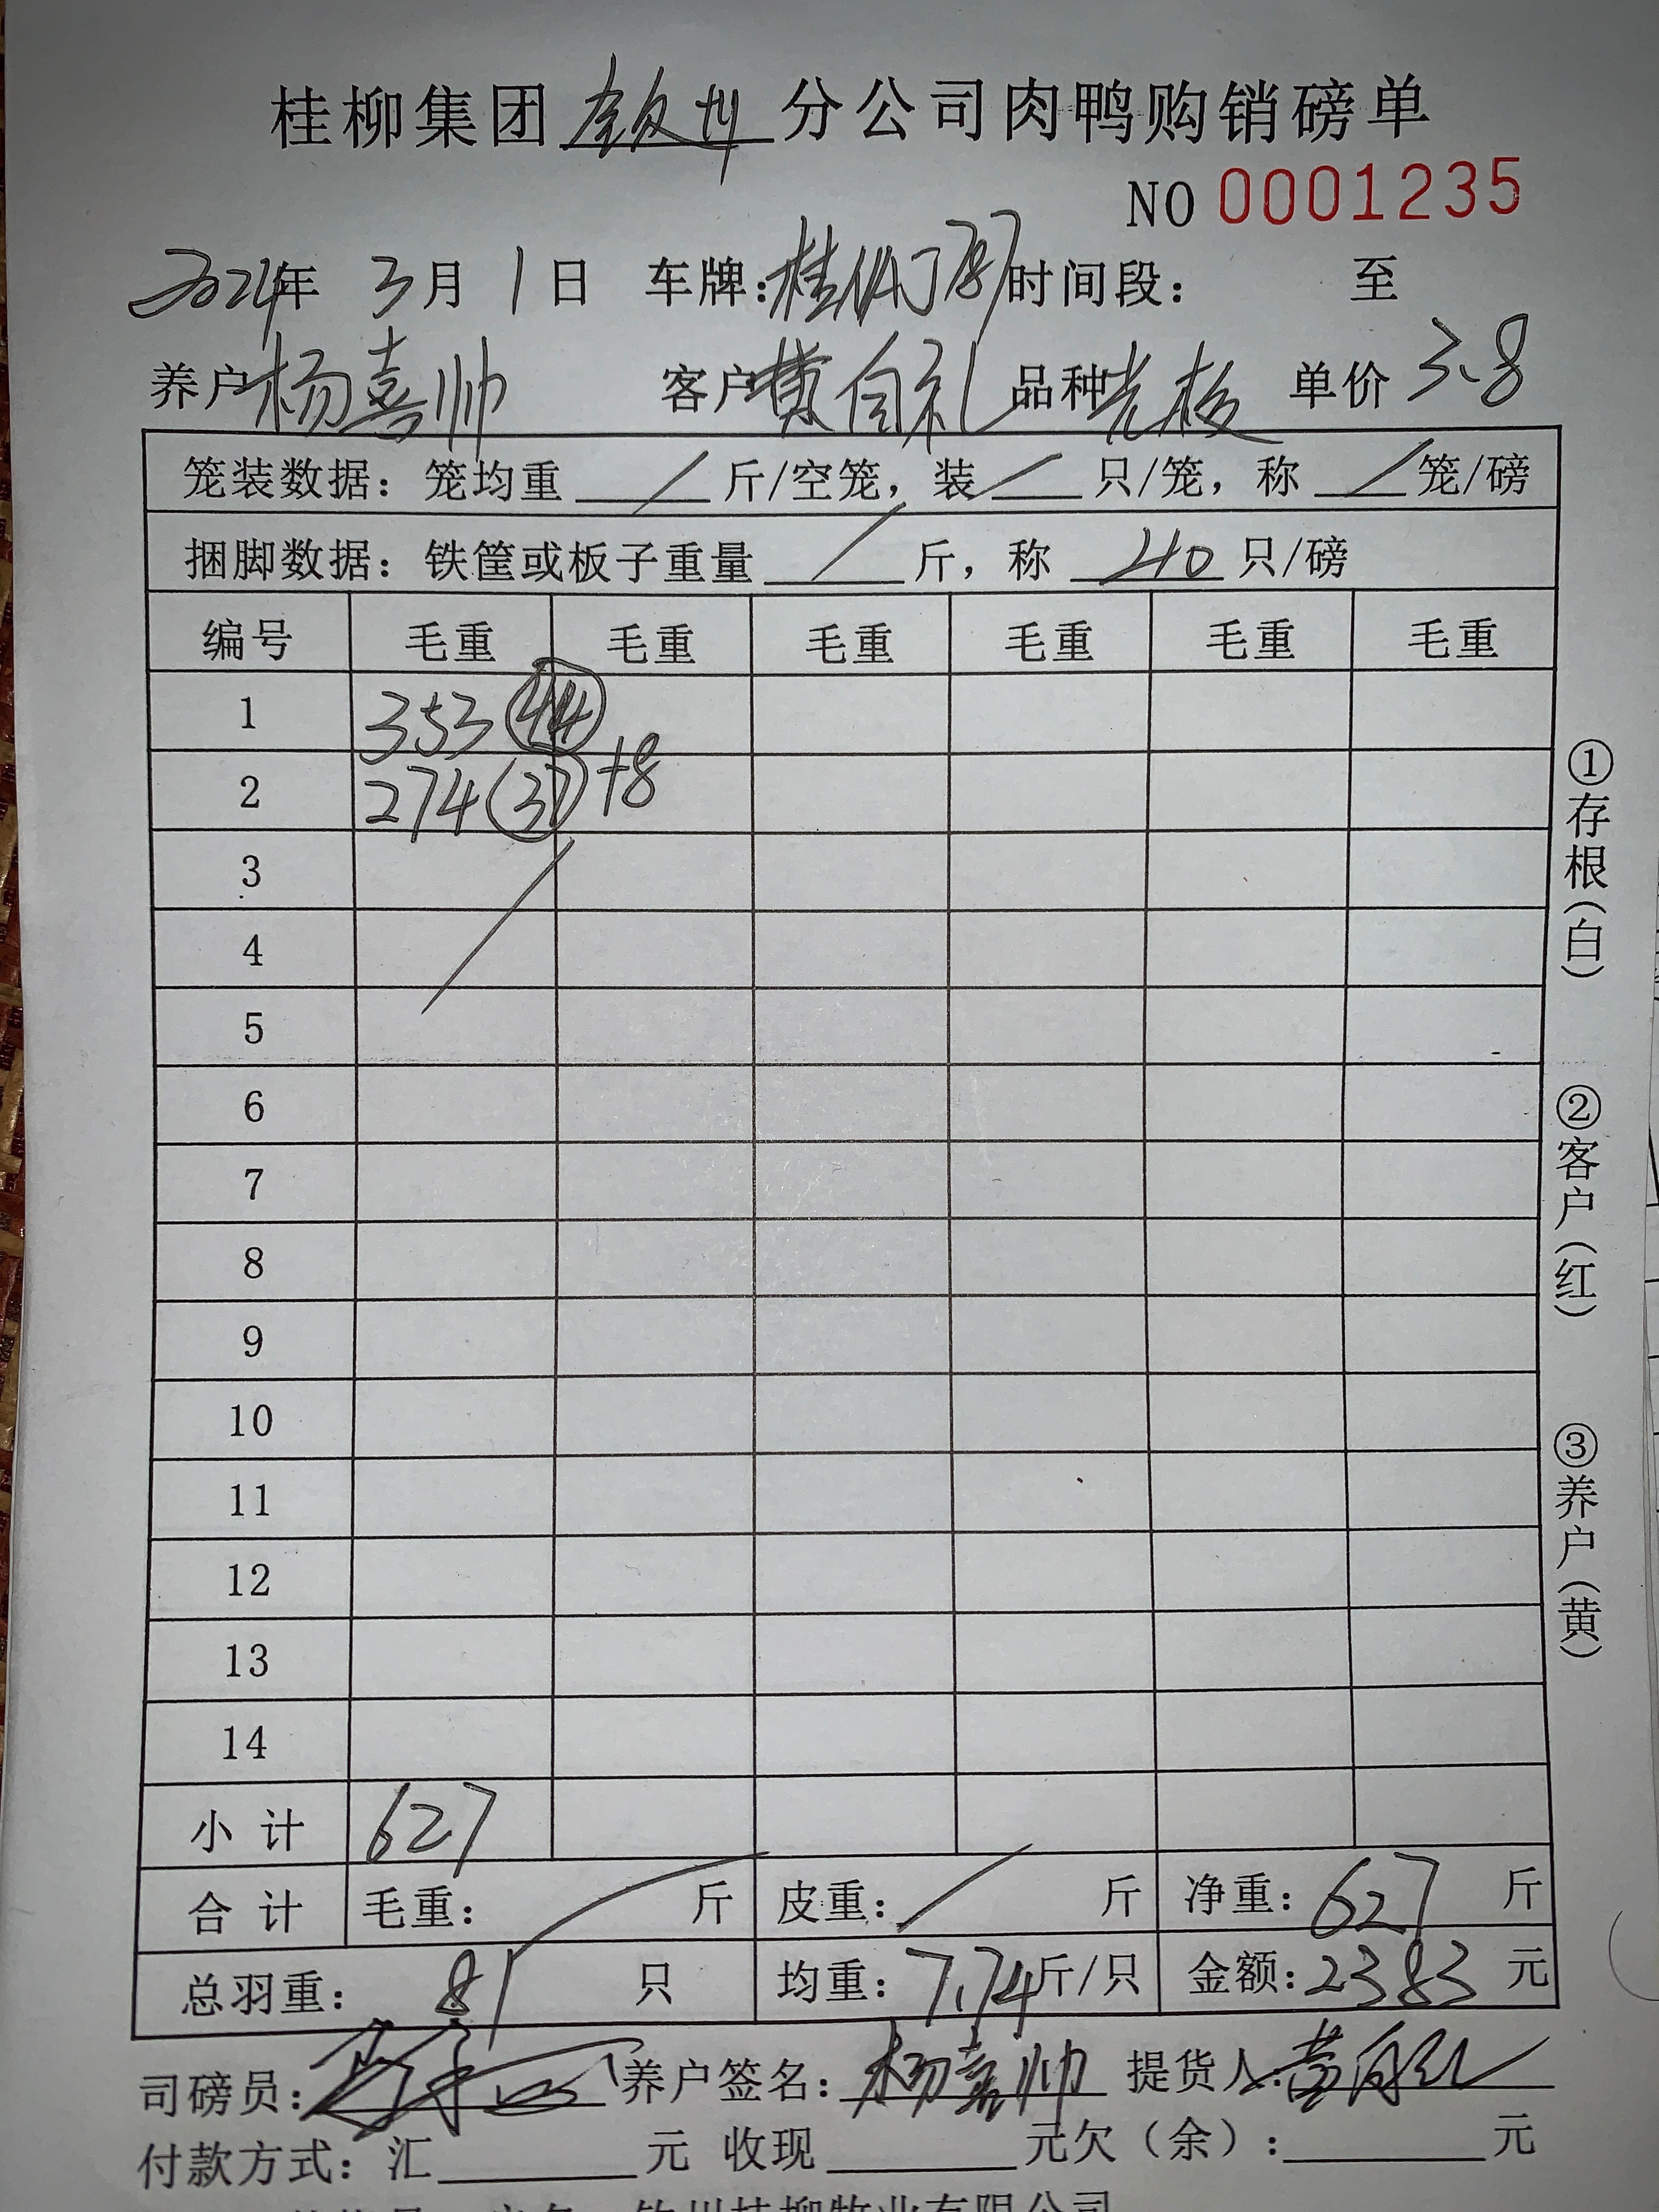 桂柳集团 钦州 分公司肉鸭购销磅单
NO 0001235
2024年 3月 1日 车牌: 桂 时间段: 至
养户 杨喜帅 客户 黄自礼 品种 单价 3.8
笼装数据: 笼均重 / 斤/空笼, 装 / 只/笼, 称 / 笼/磅
捆脚数据: 铁筐或板子重量 / 斤, 称 40 只/磅
编号 毛重 毛重 毛重 毛重 毛重 毛重
1 353 (44)
2 274 (37) +8
3
4
5
6
7
8
9
10
11
12
13
14
小计 627
合计 毛重: 斤 皮重: / 斤 净重: 627 斤
总羽重: 81 只 均重: 7.74 斤/只 金额: 2383 元
司磅员: 养户签名: 杨喜帅 提货人: 黄自礼
付款方式: 汇 元 收现 元欠(余): 元
钦州桂柳牧业有限公司
①存根(白)
②客户(红)
③养户(黄)